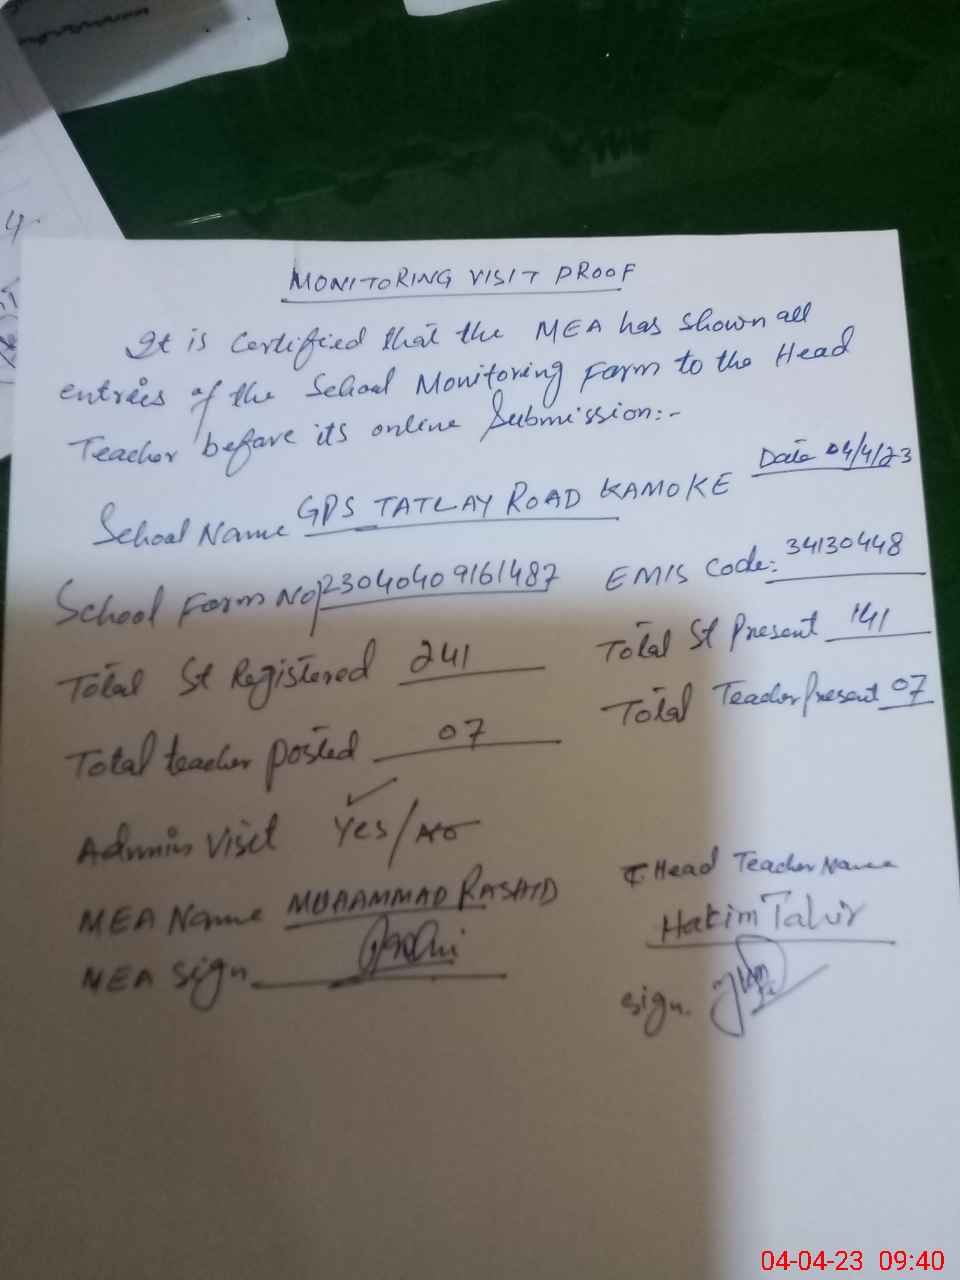 4
MONITORING VISIT PROOF
It is Certified that the MEA has shown all
entries of the School Monitoring Form to the Head
Teacher before its online Submission:-
Date 04/4/23
School Name GPS TATLAY ROAD KAMOKE
School Form No 23040409161487 EMIS Code: 34130448
Total St Registered 241 Total St Present 141
Total teacher posted 07 Total Teacher Present 07
Admin Visit Yes/No
MEA Name MUHAMMAD RASHID Head Teacher Name
Hakim Tahir
MEA Sign
Sign.
04-04-23 09:40